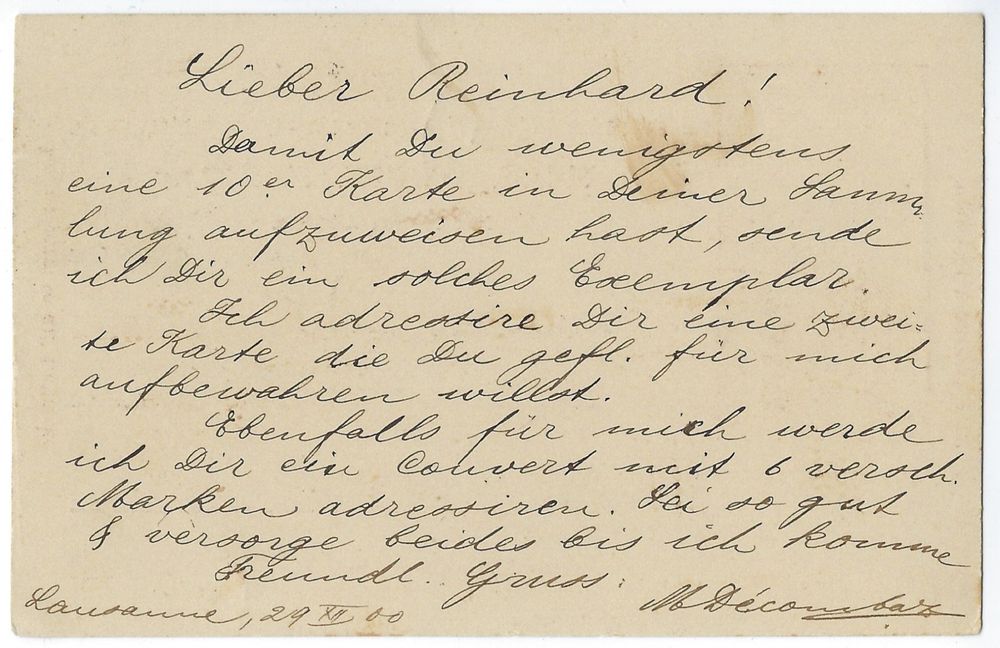 Lieber Reinhard!
Damit Du wenigstens
eine 10er Karte in Deiner Samm-
lung aufzuweisen hast, sende
ich Dir ein solches Exemplar.
Ich adressire Dir eine zwei=
te Karte die Du gefl. für mich
aufbewahren willst.
Ebenfalls für mich werde
ich Dir ein Couvert mit 6 versch.
Marken adressiren. Sei so gut
& versorge beides bis ich komme
Freundl. Gruss:
Lausanne, 29 XII 00
M Décombaz